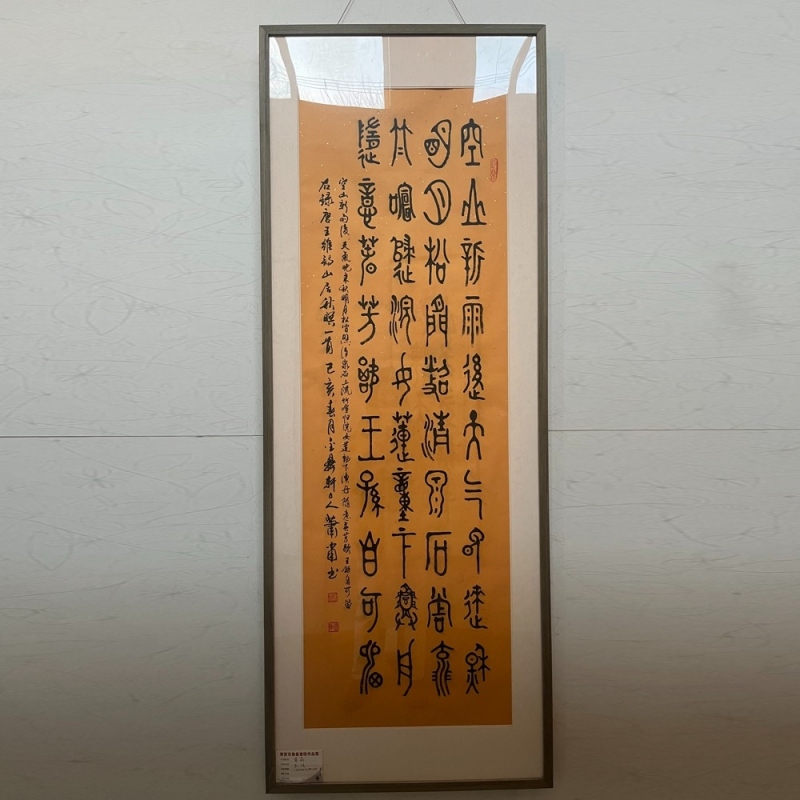 空山新雨後天气晚來秋
明月松間照清泉石上流
竹喧歸浣女蓮動下漁舟
隨意春芳歇王孫自可留
空山新雨後天氣晚來秋明月松間照清泉石上流竹喧归浣女蓮動下漁舟隨意春芳歇王孫自可留
右録唐王維詩山居秋暝一首己亥春月金鼎軒人蕭肅书